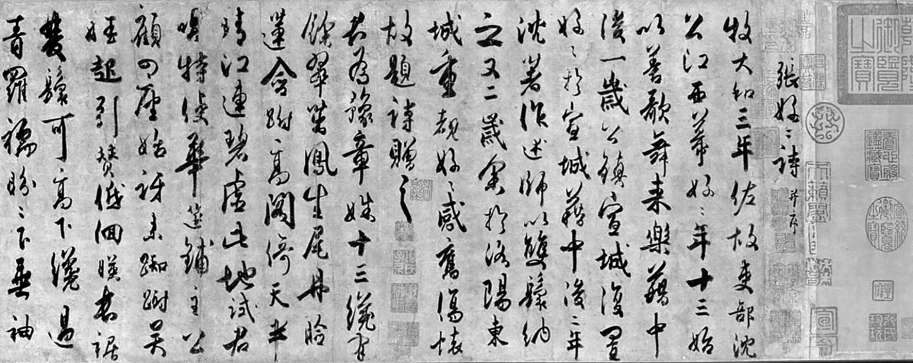 張好〻詩 并序
牧大和三年佐故吏部沈
公江西幕好〻年十三始
以善歌舞来樂籍中
後一歲公鎮宣城復置
好〻於宣城藉中後二年
沈著作述師以雙鬟納
之又二歲余於洛陽東
城重覩好〻感舊傷懷
故題詩贈之
君為豫章姝十三纔有
餘翠茁鳳生尾丹臉
蓮含跗高閣倚天半
晴江連碧虛此地試君
唱特使華筵鋪主公
顧四座始訝来踟蹰吳
娃起引贊低佪暎長裾
雙鬟可高下纔過
青羅襦盼〻下垂袖